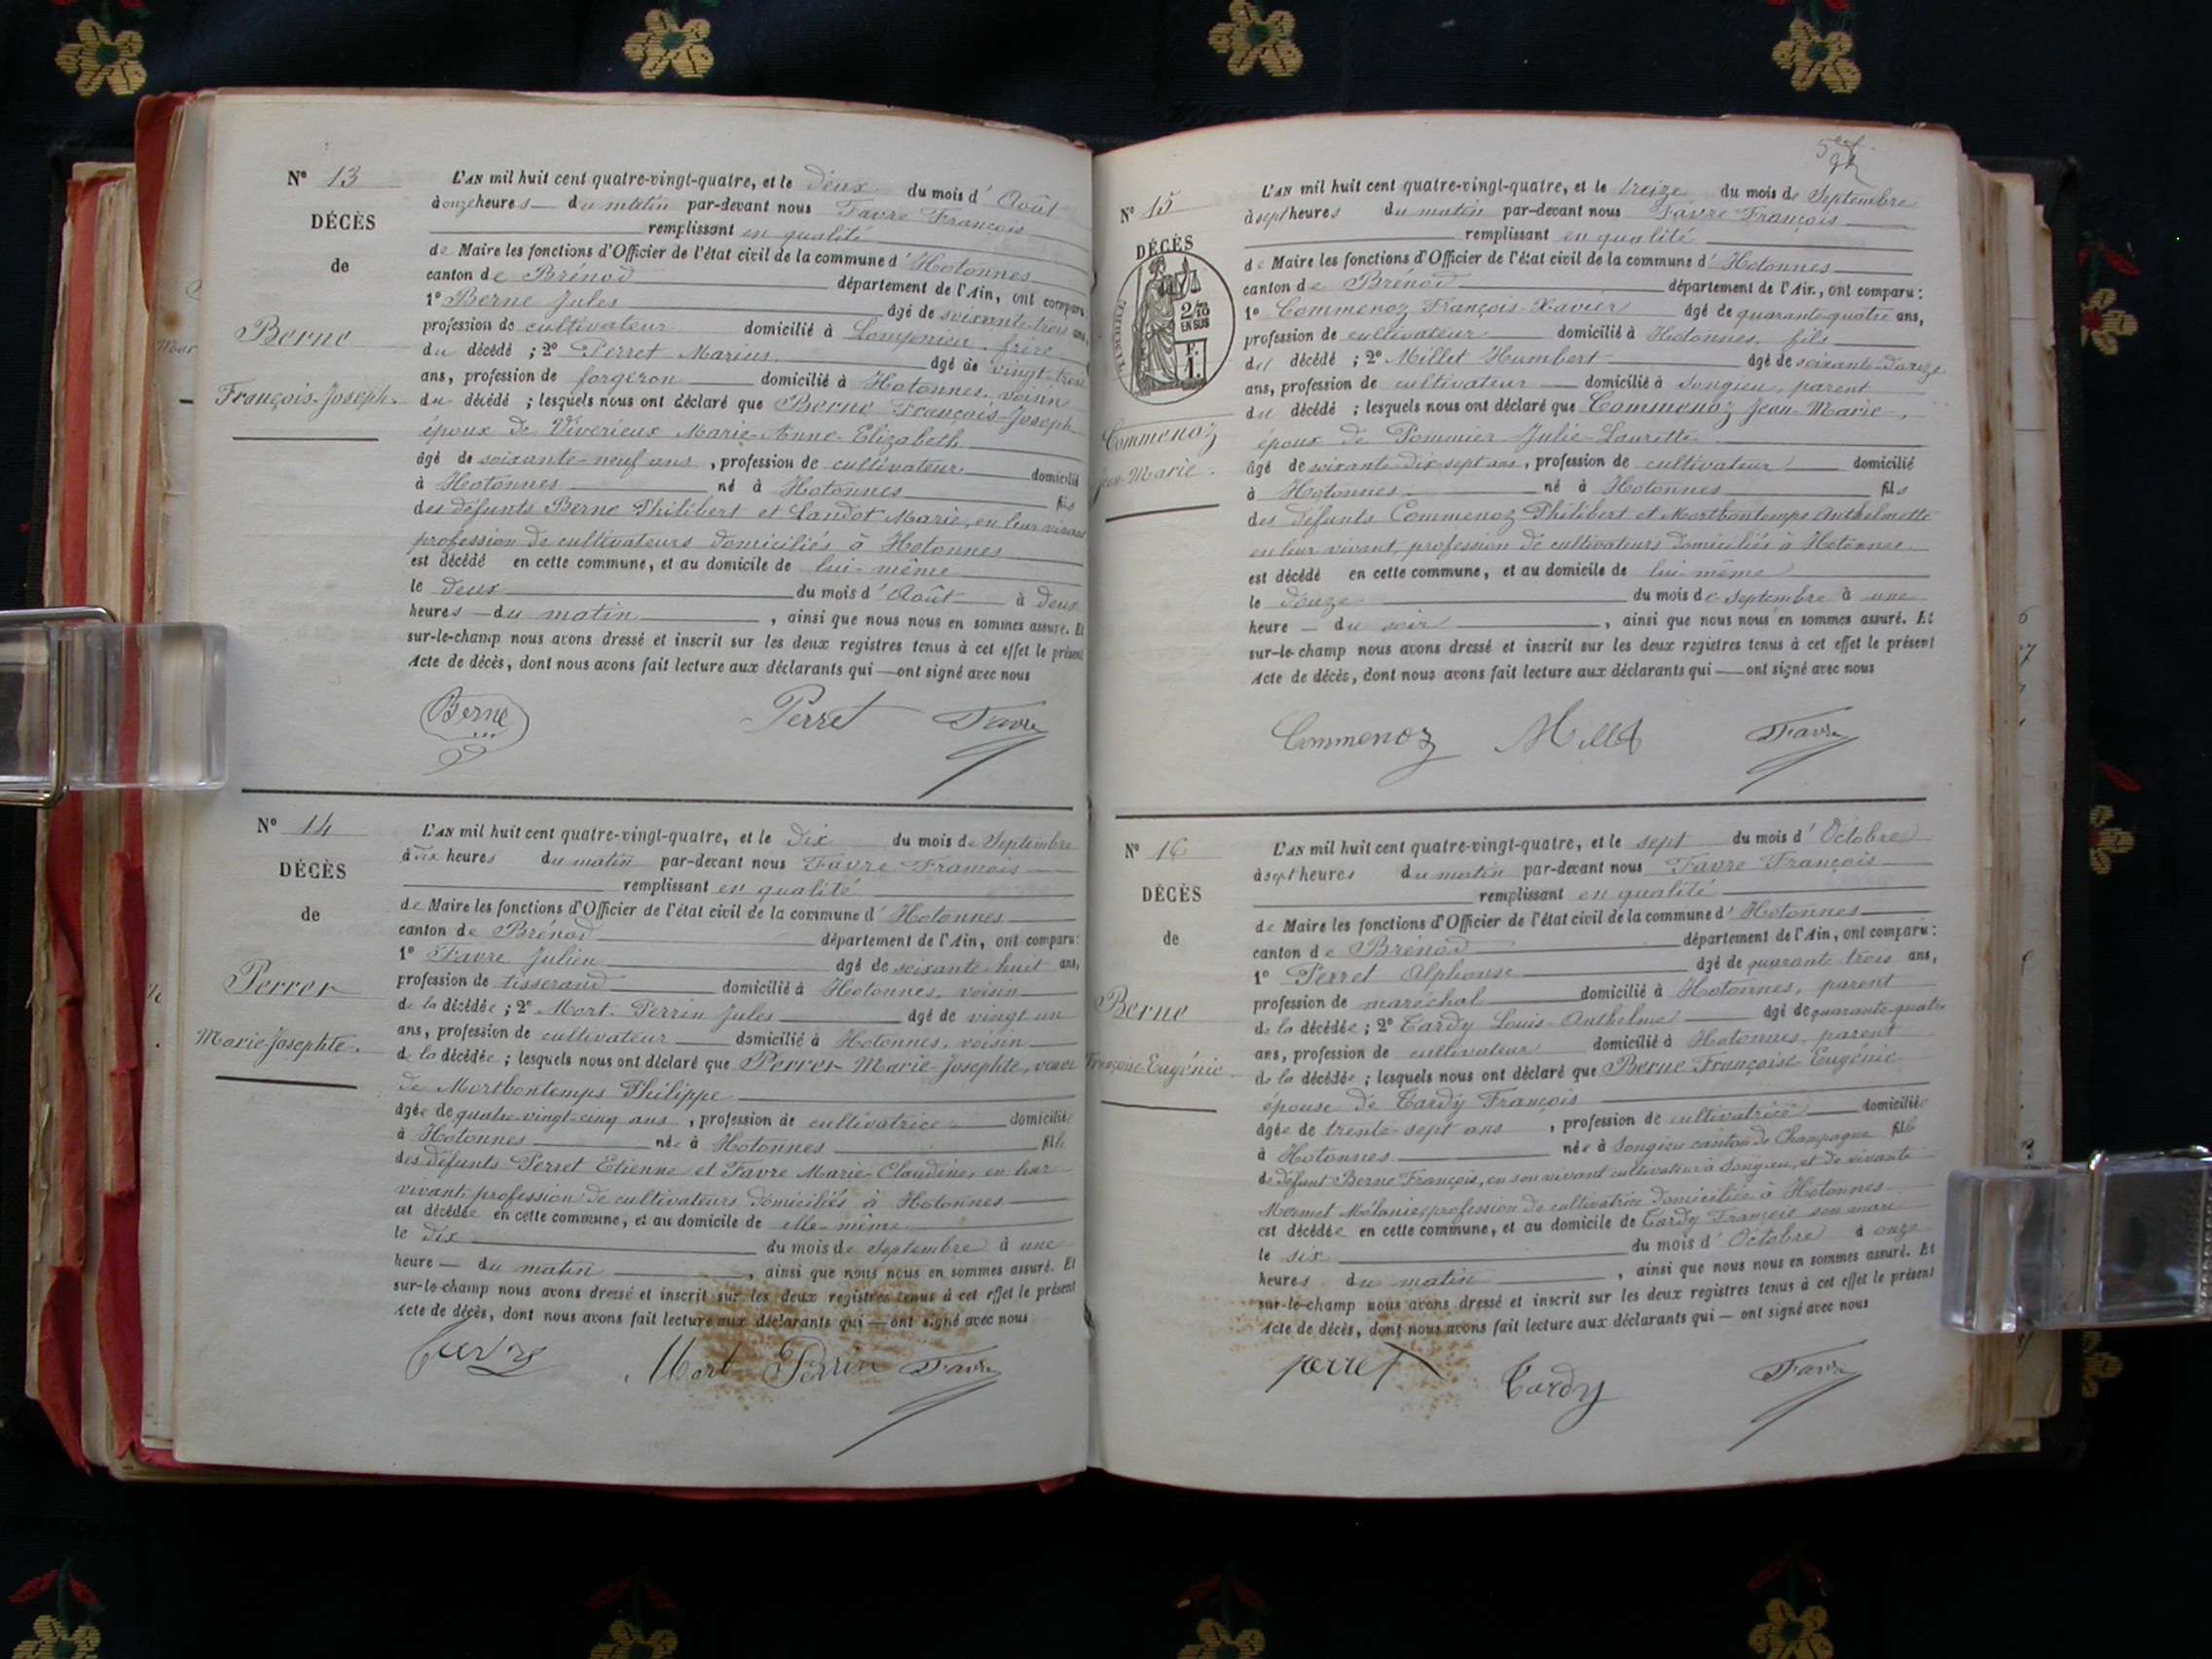 N° 13
DÉCÈS
de
Berne
François-Joseph.
L'AN mil huit cent quatre-vingt-quatre, et le deux du mois d'Août
à onze heures du matin par-devant nous Favre François
remplissant en qualité
de Maire les fonctions d'Officier de l'état civil de la commune d'Hotonnes
canton de Brénod département de l'Ain, ont comparu:
1° Berne Jules âgé de soixante-trois ans,
profession de cultivateur domicilié à Lompnieu, frère
du décédé ; 2° Perret Marius âgé de vingt-trois
ans, profession de forgeron domicilié à Hotonnes, voisin
du décédé ; lesquels nous ont déclaré que Berne François-Joseph
époux de Viverieux Marie-Anne-Elizabeth
âgé de soixante-neuf ans, profession de cultivateur domicilié
à Hotonnes né à Hotonnes fils
des défunts Berne Philibert et Landot Marie, en leur vivant
profession de cultivateurs domiciliés à Hotonnes
est décédé en cette commune, et au domicile de lui-même
le deux du mois d'Août à deux
heures du matin, ainsi que nous nous en sommes assuré. Et
sur-le-champ nous avons dressé et inscrit sur les deux registres tenus à cet effet le présent
Acte de décès, dont nous avons fait lecture aux déclarants qui — ont signé avec nous
Berne Perret Favre
N° 14
DÉCÈS
de
Perret
Marie-Josephte.
L'AN mil huit cent quatre-vingt-quatre, et le dix du mois de Septembre
à dix heures du matin par-devant nous Favre François
remplissant en qualité
de Maire les fonctions d'Officier de l'état civil de la commune d'Hotonnes
canton de Brénod département de l'Ain, ont comparu:
1° Favre Julien âgé de soixante-huit ans,
profession de tisserand domicilié à Hotonnes, voisin
de la décédée ; 2° Mort-Perrin Jules âgé de vingt-un
ans, profession de cultivateur domicilié à Hotonnes, voisin
de la décédée ; lesquels nous ont déclaré que Perret Marie-Josephte, veuve
de Mortbontemps Philippe
âgée de quatre-vingt-cinq ans, profession de cultivatrice domiciliée
à Hotonnes née à Hotonnes fille
des défunts Perret Etienne et Favre Marie-Claudine, en leur
vivant profession de cultivateurs domiciliés à Hotonnes
est décédée en cette commune, et au domicile de elle-même
le dix du mois de Septembre à une
heure — du matin, ainsi que nous nous en sommes assuré. Et
sur-le-champ nous avons dressé et inscrit sur les deux registres tenus à cet effet le présent
Acte de décès, dont nous avons fait lecture aux déclarants qui — ont signé avec nous
Favre Mort Perrin Favre
N° 15
DÉCÈS
2/10
EN SUS
F.
1.
Commenoz
Jean-Marie.
L'AN mil huit cent quatre-vingt-quatre, et le treize du mois de Septembre
à sept heures du matin par-devant nous Favre François
remplissant en qualité
de Maire les fonctions d'Officier de l'état civil de la commune d'Hotonnes
canton de Brénod département de l'Ain, ont comparu:
1° Commenoz François-Xavier âgé de quarante-quatre ans,
profession de cultivateur domicilié à Hotonnes, fils
du décédé ; 2° Millet Humbert âgé de soixante-douze
ans, profession de cultivateur domicilié à Songieu, parent
du décédé ; lesquels nous ont déclaré que Commenoz Jean-Marie,
époux de Pommier Julie-Laurette
âgé de soixante-dix-sept ans, profession de cultivateur domicilié
à Hotonnes né à Hotonnes fils
des défunts Commenoz Philibert et Mortbontemps Anthelmette
en leur vivant, profession de cultivateurs domiciliés à Hotonnes
est décédé en cette commune, et au domicile de lui-même
le douze du mois de Septembre à une
heure — du soir, ainsi que nous nous en sommes assuré. Et
sur-le-champ nous avons dressé et inscrit sur les deux registres tenus à cet effet le présent
Acte de décès, dont nous avons fait lecture aux déclarants qui — ont signé avec nous
Commenoz Millet Favre
N° 16
DÉCÈS
de
Berne
Françoise-Eugénie
L'AN mil huit cent quatre-vingt-quatre, et le sept du mois d'Octobre
à sept heures du matin par-devant nous Favre François
remplissant en qualité
de Maire les fonctions d'Officier de l'état civil de la commune d'Hotonnes
canton de Brénod département de l'Ain, ont comparu:
1° Perret Alphonse âgé de quarante-trois ans,
profession de maréchal domicilié à Hotonnes, parent
de la décédée ; 2° Tardy Louis-Anthelme âgé de quarante-quatre
ans, profession de cultivateur domicilié à Hotonnes, parent
de la décédée ; lesquels nous ont déclaré que Berne Françoise-Eugénie
épouse de Tardy François
âgée de trente-sept ans, profession de cultivatrice domiciliée
à Hotonnes née à Songieu canton de Champagne fille
de défunt Berne François, en son vivant cultivateur à Songieu, et de vivante
Mermet Mélanie, profession de cultivatrice domiciliée à Hotonnes
est décédée en cette commune, et au domicile de Tardy François son mari
le six du mois d'Octobre à onze
heures du matin, ainsi que nous nous en sommes assuré. Et
sur-le-champ nous avons dressé et inscrit sur les deux registres tenus à cet effet le présent
Acte de décès, dont nous avons fait lecture aux déclarants qui — ont signé avec nous
perret Tardy Favre